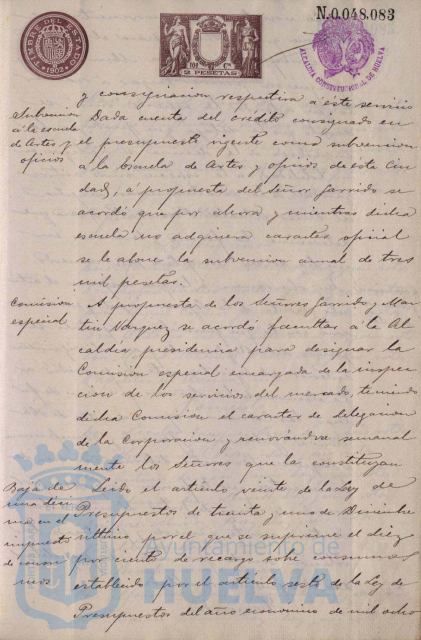 N.0.048.083
TIMBRE DEL ESTADO
1902
2 PESETAS
ALCALDIA CONSTITUCIONAL DE HUELVA
y consignacion respectiva a este servicio
Subvencion
á la escuela
de Artes y
oficios
Dada cuenta del crédito consignado en
el presupuesto vigente como subvencion
a la Escuela de Artes y oficios de ésta Ciu
dad, á propuesta del Señor Garrido se
acordó que por ahora y mientras dicha
escuela no adquiera caracter oficial
se le abone la subvencion anual de tres
mil pesetas.
Comision
especial
A propuesta de los Señores Garrido y Mar
tin Vazquez se acordó facultar á la Al
caldía presidencia para designar la
Comision especial encargada de la inspec
cion de los servicios del mercado, teniendo
dicha Comision el caracter de delegacion
de la Corporacion y renovándose semanal
mente los Señores que la constituyan
Baja de
una déci
ma en el
impuesto
de consu
mos
Leido el artículo veinte de la Ley de
Presupuestos de treinta y uno de Diciembre
último por el que se suprime el diez
por ciento de recargo sobre consumos
establecido por el artículo sesto de la Ley de
Presupuestos del año economico de mil ocho
Ayuntamiento de
HUELVA